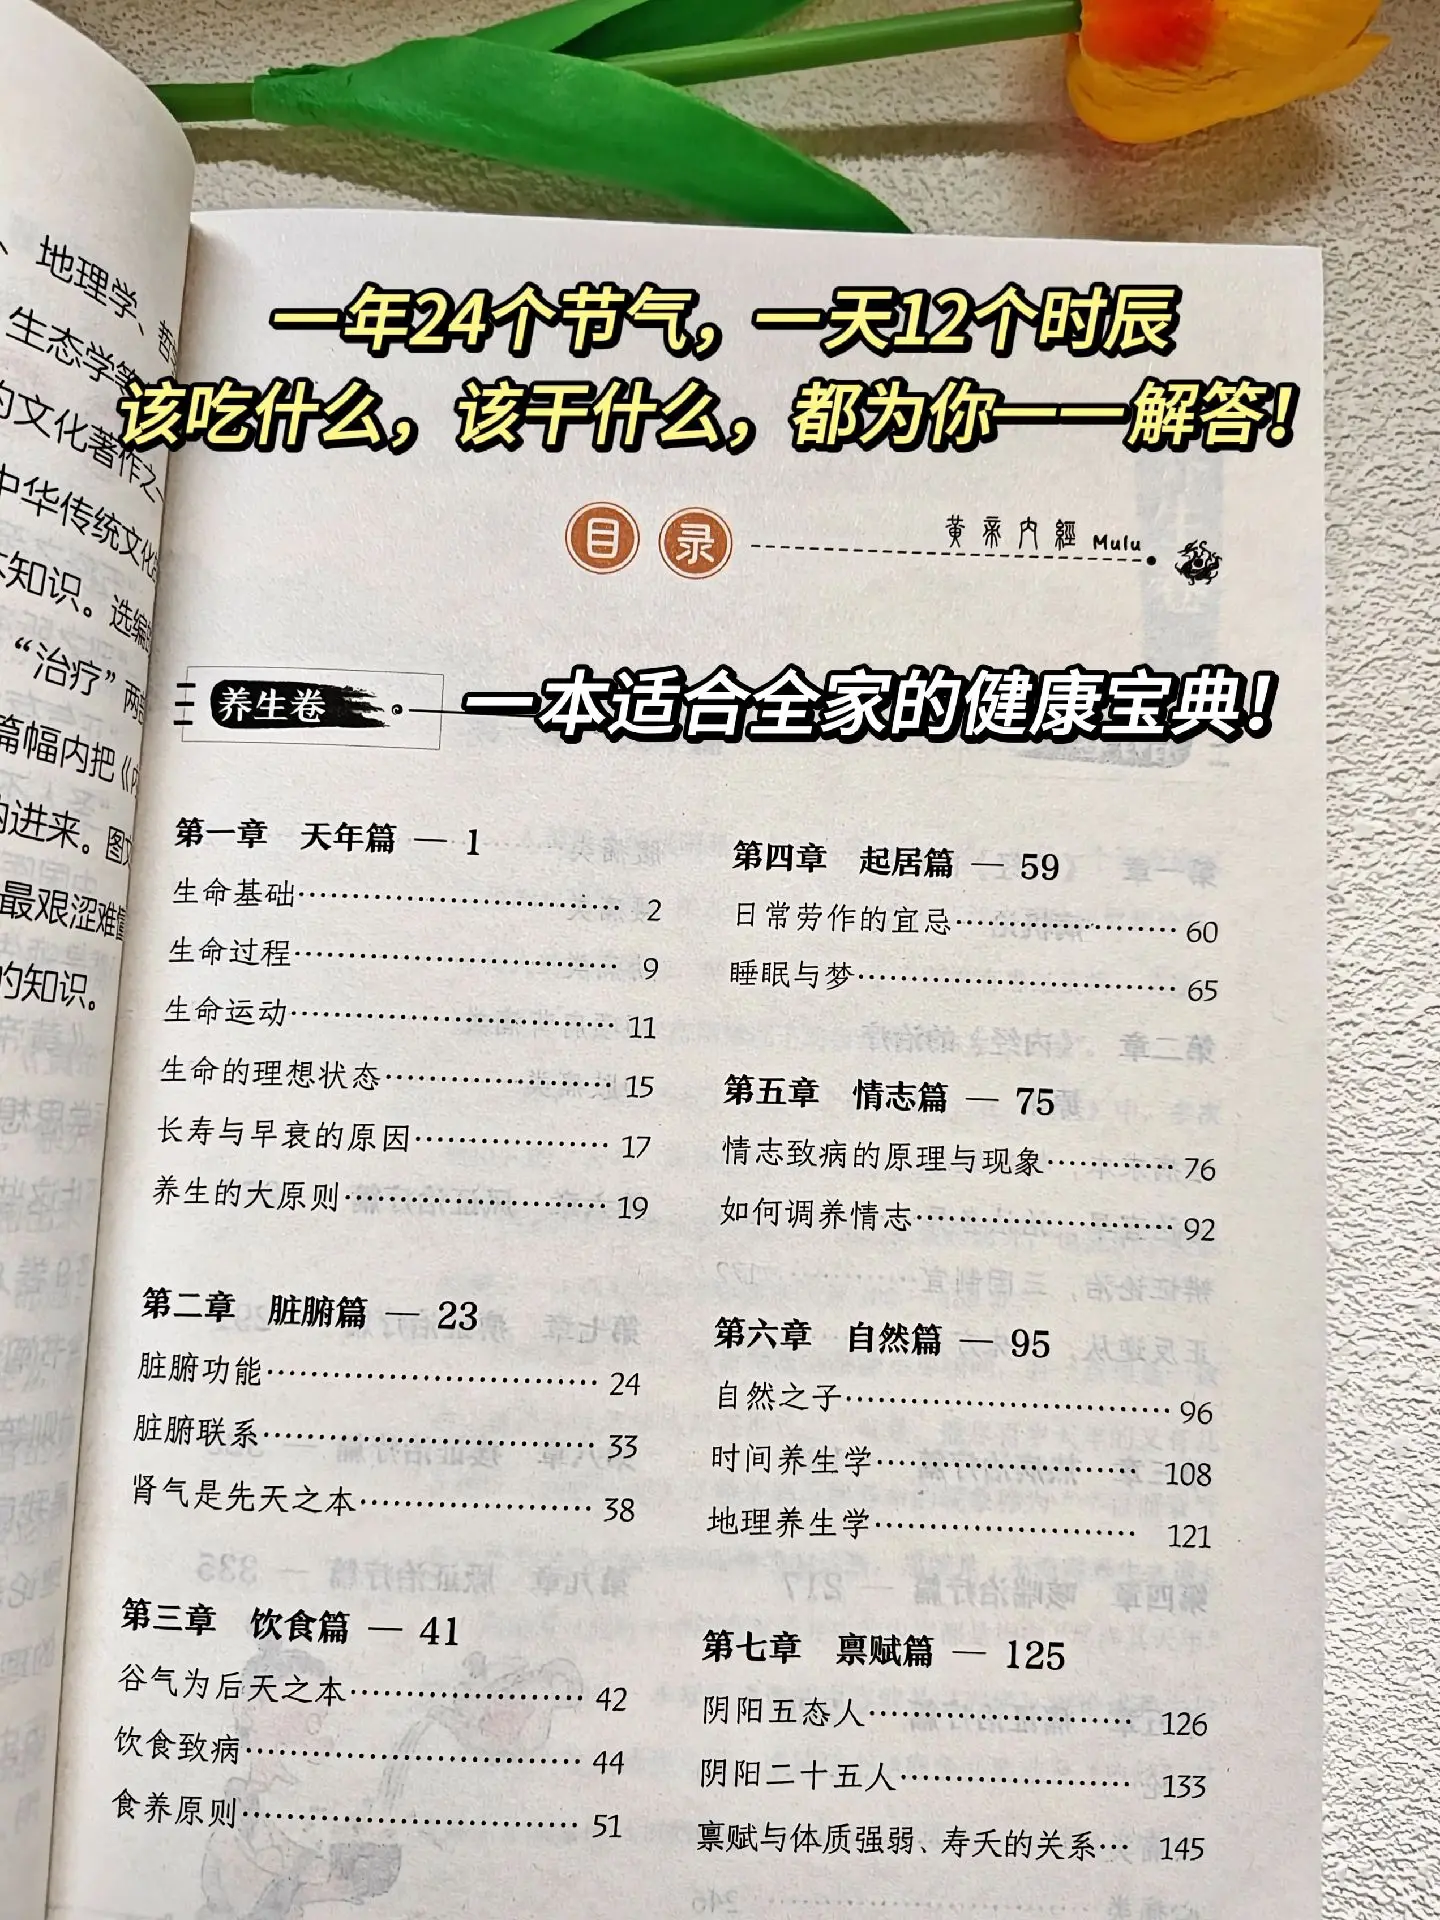 一年24个节气，一天12个时辰
该吃什么，该干什么，都为你一一解答！
、地理学、
生态学等
的文化著作之一
中华传统文化
知识。选编
“治疗”两
篇幅内把《
的进来。图文
最艰涩难
的知识。
目录
黄帝内經 Mulu
养生卷
一本适合全家的健康宝典！
第一章 天年篇 — 1
生命基础 2
生命过程 9
生命运动 11
生命的理想状态 15
长寿与早衰的原因 17
养生的大原则 19
第二章 脏腑篇 — 23
脏腑功能 24
脏腑联系 33
肾气是先天之本 38
第三章 饮食篇 — 41
谷气为后天之本 42
饮食致病 44
食养原则 51
第四章 起居篇 — 59
日常劳作的宜忌 60
睡眠与梦 65
第五章 情志篇 — 75
情志致病的原理与现象 76
如何调养情志 92
第六章 自然篇 — 95
自然之子 96
时间养生学 108
地理养生学 121
第七章 禀赋篇 — 125
阴阳五态人 126
阴阳二十五人 133
禀赋与体质强弱、寿夭的关系 145